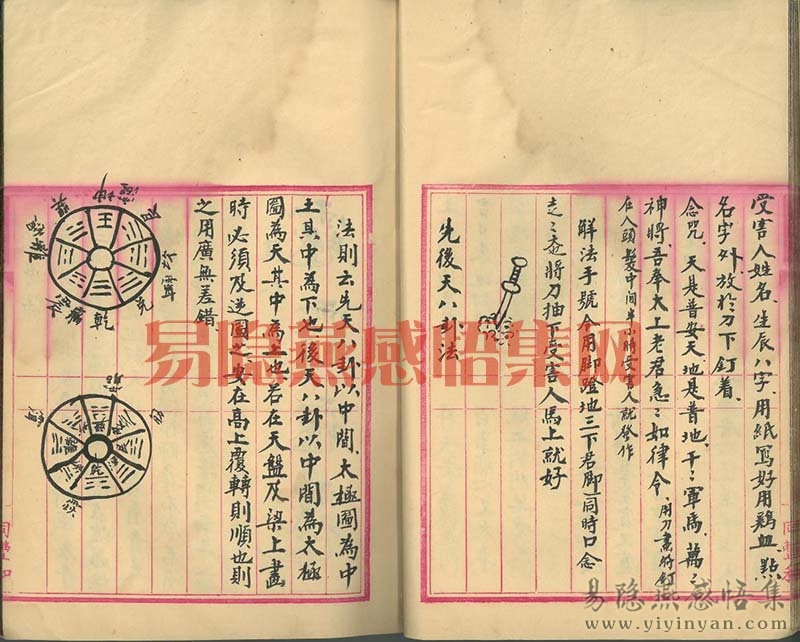 受害人姓名、生辰八字、用紙寫好用鷄血點
名字外放於刀下釘着、
念咒、天是普安天、地是普地、千〻軍馬、萬〻
神將、吾奉太上老君急〻如律令、用刀畫符釘
在人頭髮中間半小時受害人就發作
解法手號令用脚蹬地三下君脚同時口念
走〻走將刀抽下受害人馬上就好
先後天八卦法
法則云先天八卦以中間、太極圖為中
土其中為下也後天八卦以中間為太極
圖為天其中為上也若在天盤及梁上畫
時必須及逆圖之安在高上覆轉則順也則
之用廣無差錯、
王
坤
艮
坎
兌
乾
巽
離
震
乾
同豐和
易隐燕感悟集网
易隐燕感悟集
www.yiyinyan.com